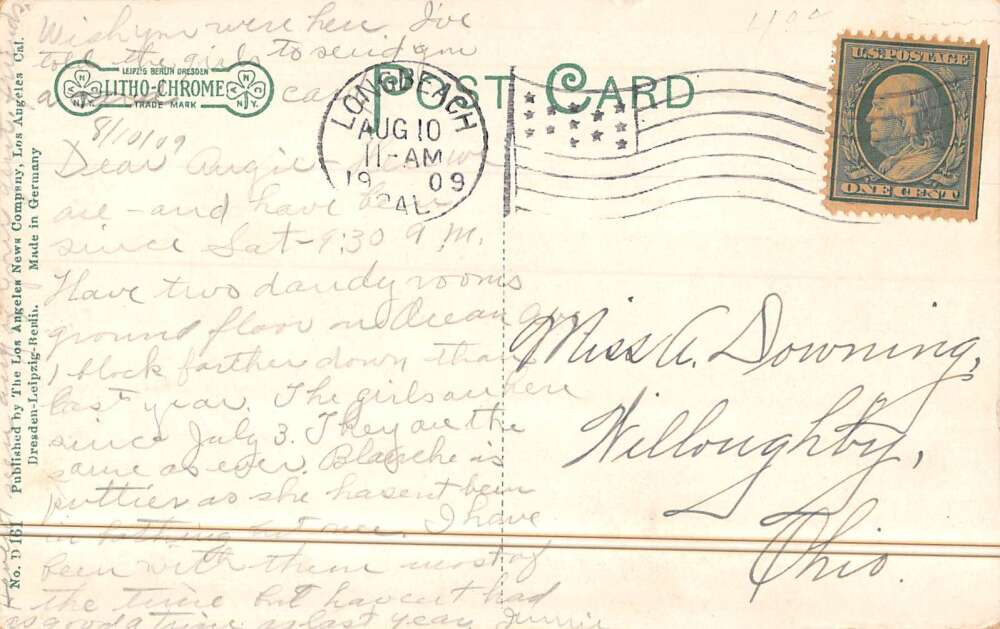 Wish you were here. I've
told the girls to send you
a card
LEIPZIG BERLIN DRESDEN
LITHO-CHROME
TRADE MARK
N N.Y.
N N.Y.
POST CARD
LONG BEACH
AUG 10
11-AM
1909
CAL.
U.S. POSTAGE
ONE CENT
8/10/09
Dear Angie - Here we
are - and have been
since Sat - 9:30 A.M.
Have two dandy rooms
ground floor on Ocean Ave
1 block farther down than
last year. The girls are here
since July 3. They are the
same as ever. Blanche is
prettier as she hasent been
in bathing but once. I have
been with them most of
the time but havent had
as good a time as last year.
Miss A. Downing,
Willoughby,
Ohio.
No. D 161 Published by The Los Angeles News Company, Los Angeles Cal.
Dresden-Leipzig-Berlin. Made in Germany